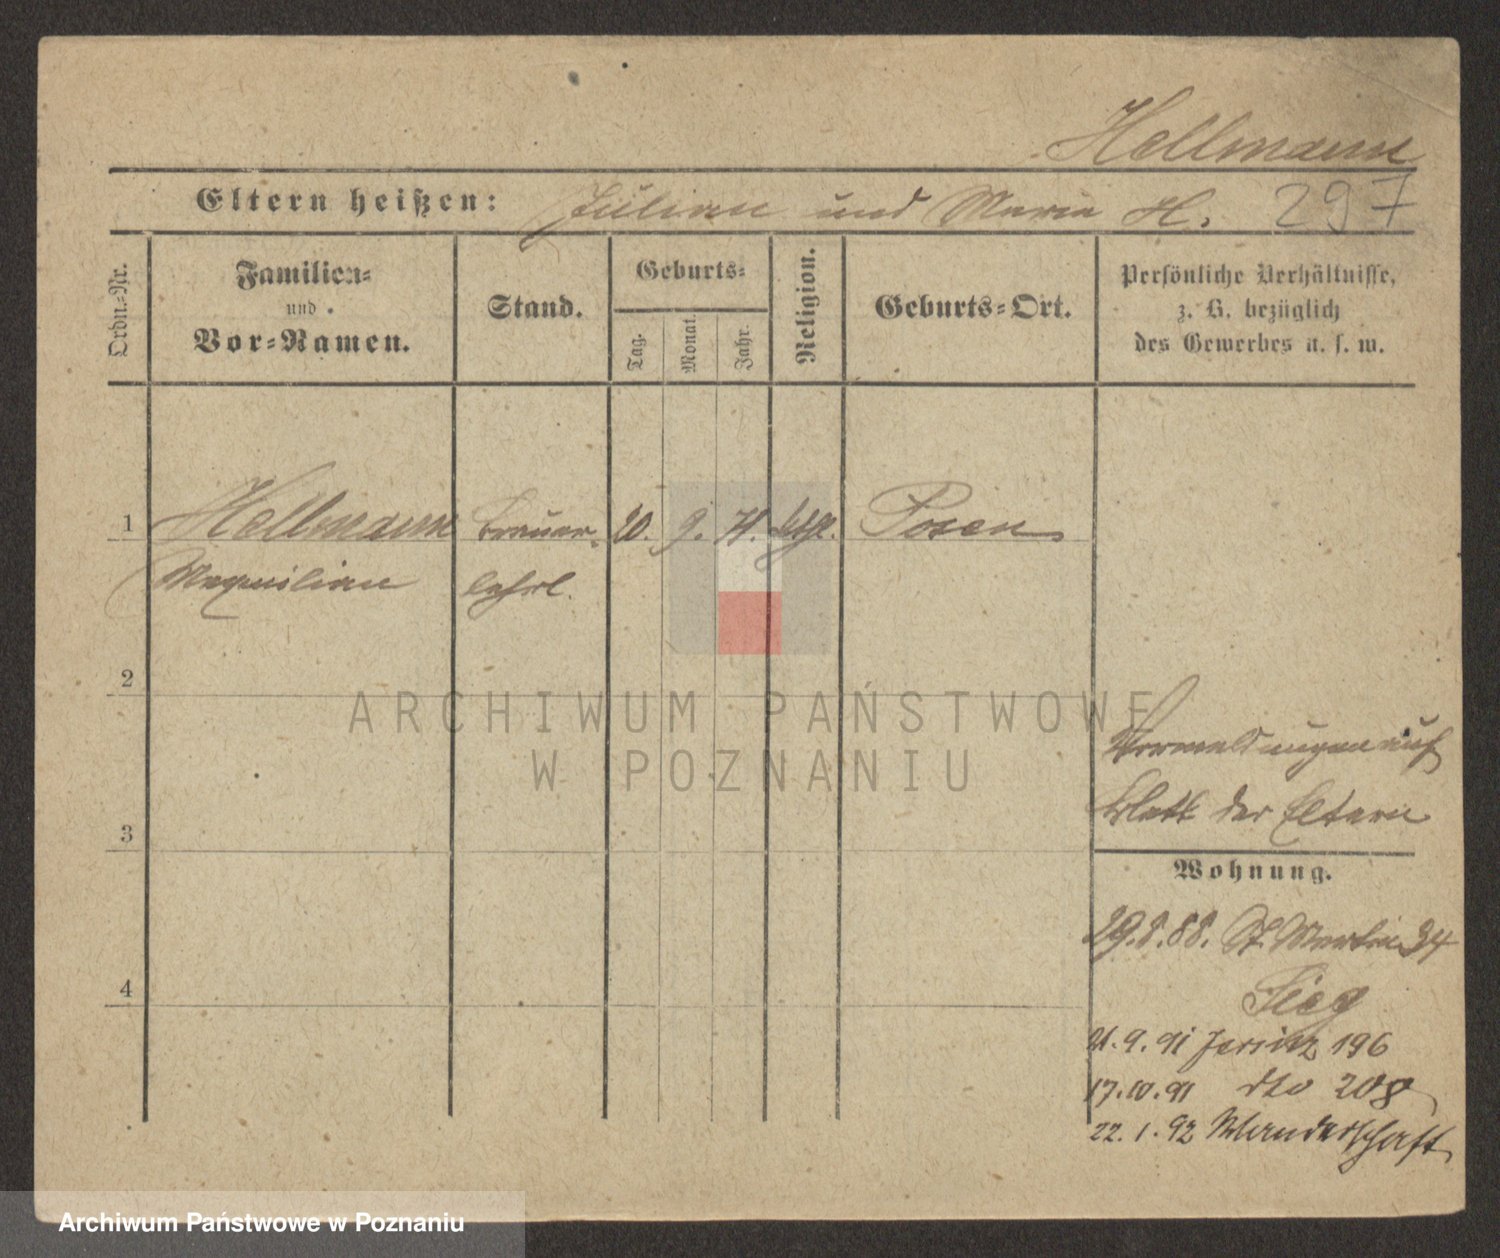 Hellmann
Eltern heißen: Julian und Maria H. 297
Ordn.=Nr.
Familien=
und
Vor=Namen.
Stand.
Geburts=
Tag.
Monat.
Jahr.
Religion.
Geburts=Ort.
Persönliche Verhältnisse,
z. B. bezüglich
des Gewerbes u. s. w.
1 Hellmann Brauer- 20. 9. 74. kthl. Posen
Maximilian lehrl.
2
Vermeldungen auf
Blatt der Eltern
3
Wohnung.
29.8.88. St. Martin 34
4
21.9.91 Jersitz 196
17.10.91 dto 208
22.1.92 Wanderschaft
ARCHIWUM PAŃSTWOWE
W POZNANIU
Archiwum Państwowe w Poznaniu